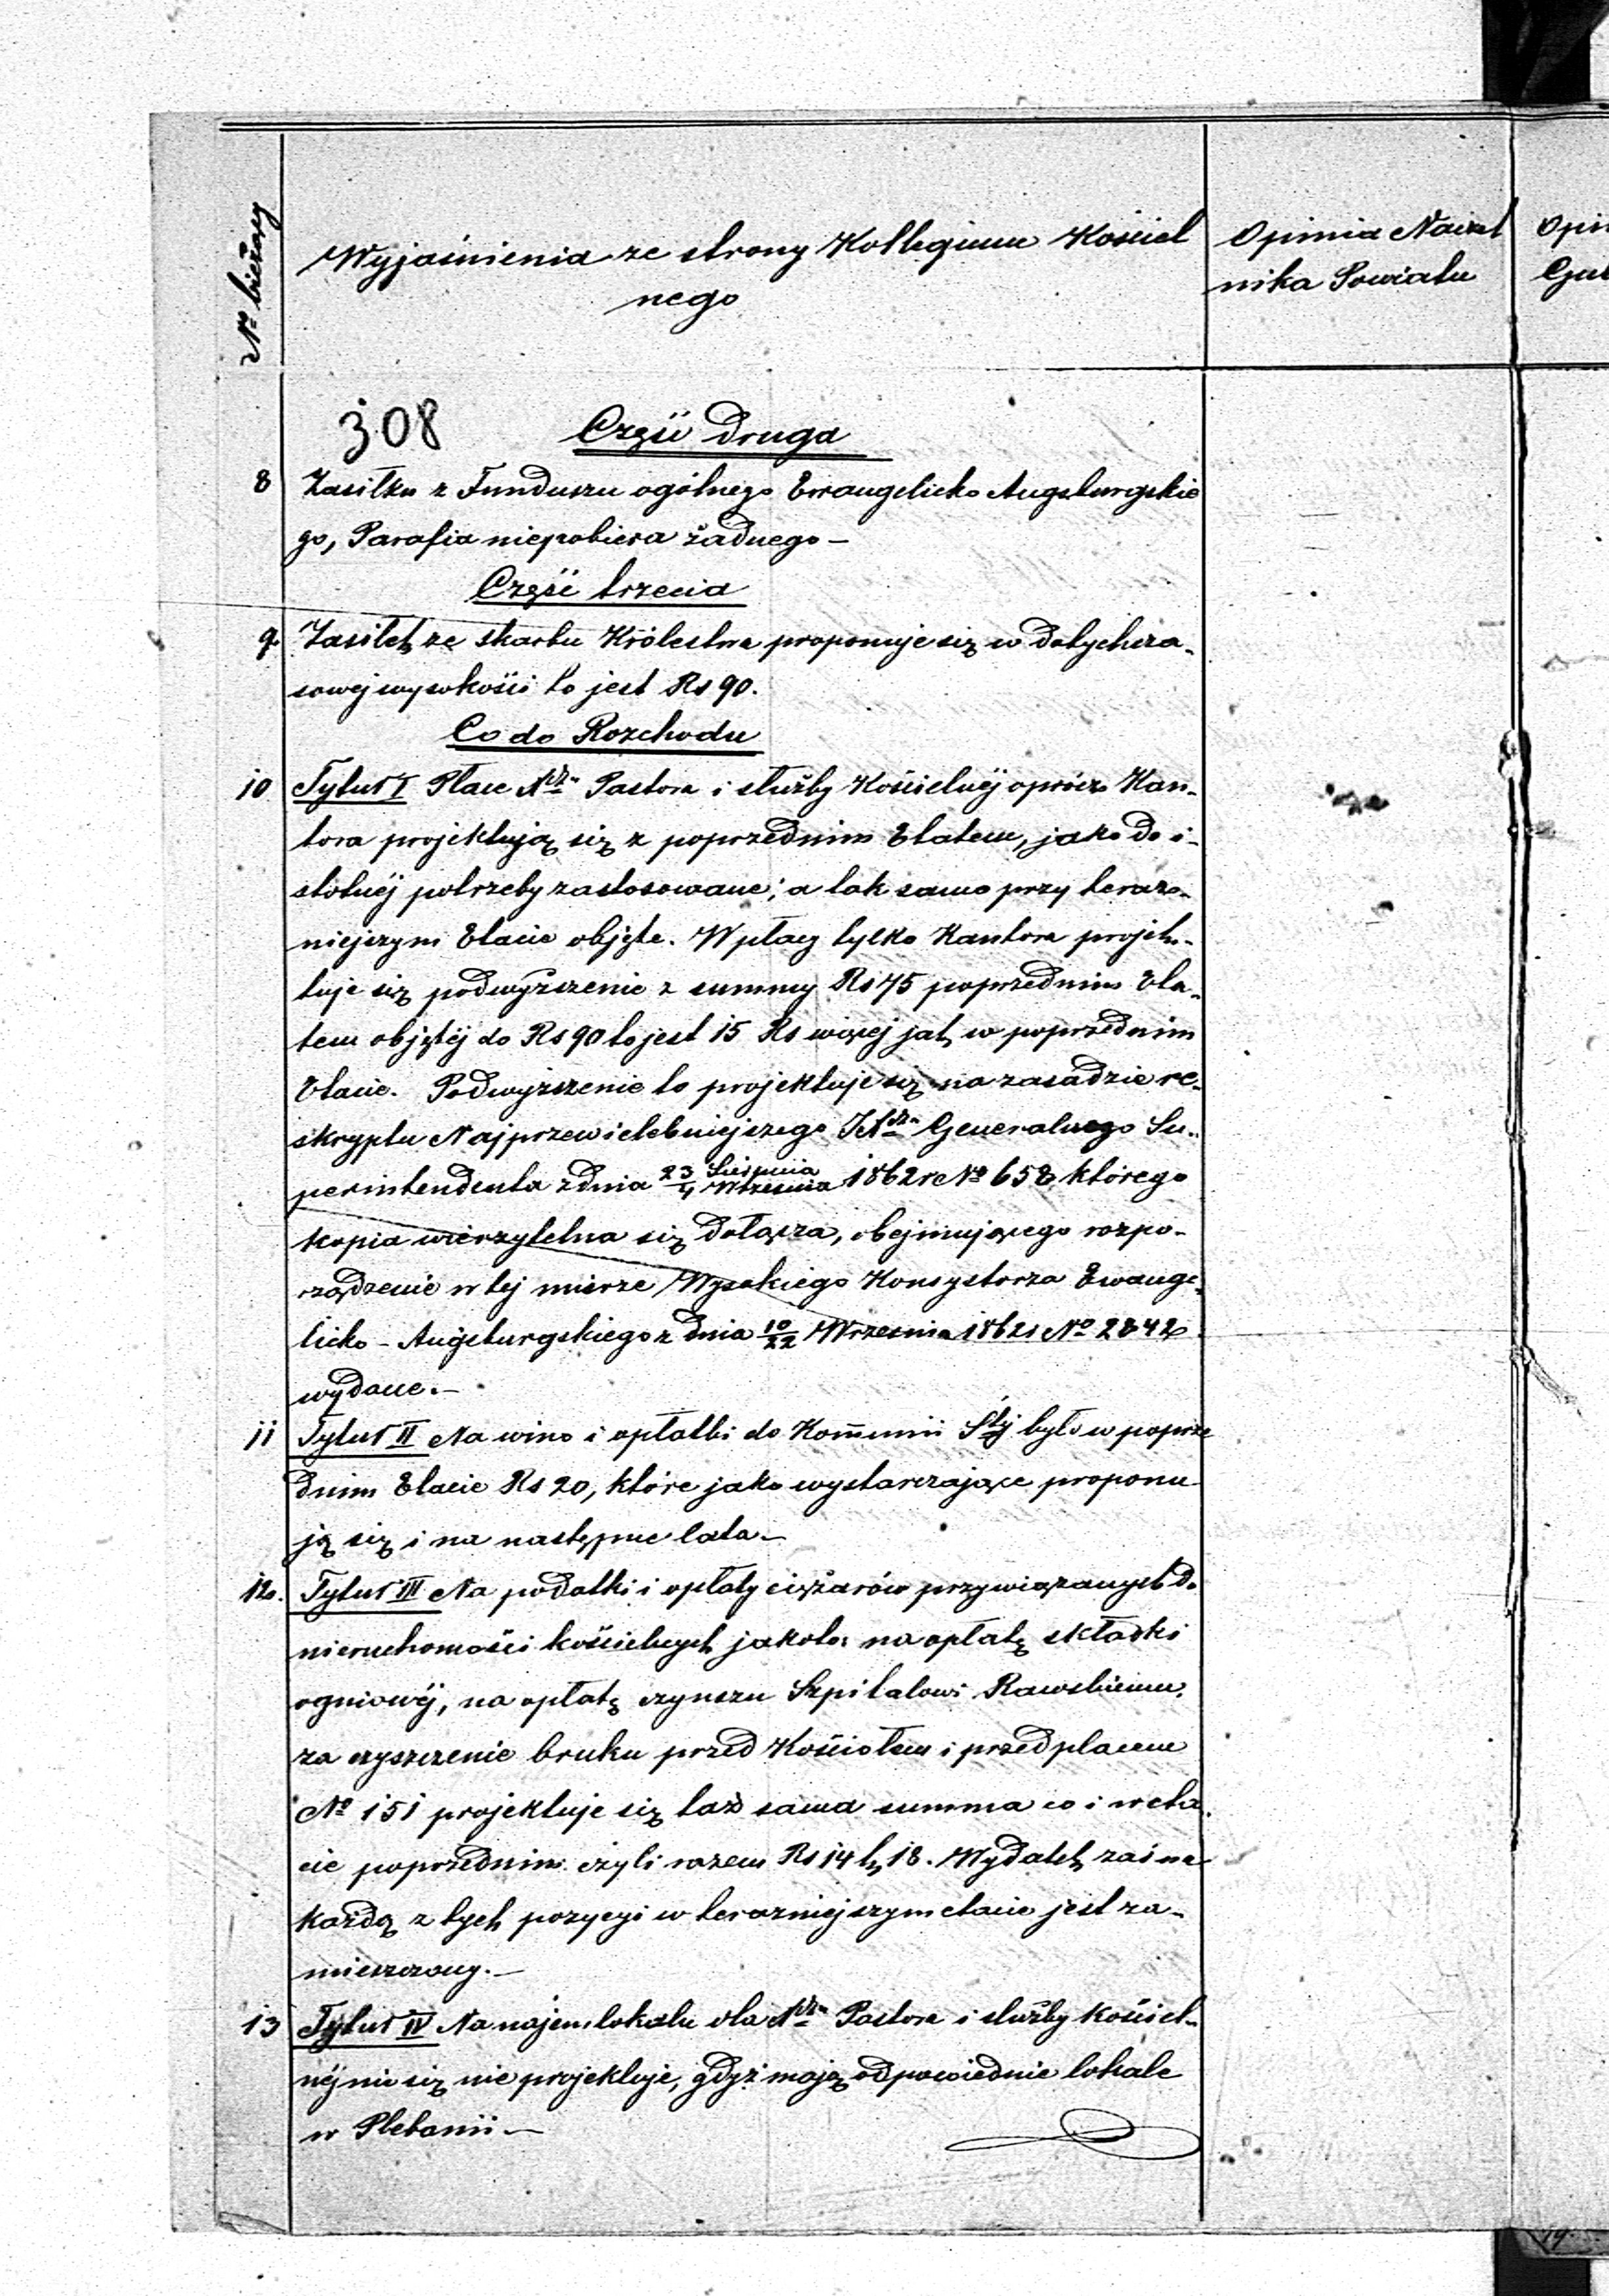 No bieżący
Wyjaśnienia ze strony Kollegium Kościel
nego
Opinia Naczel
nika Powiatu
Opin
Gub
308
Część Druga
8 Zasiłku z Funduszu ogólnego Ewangelicko Augsburgskie
go, Parafia niepobiera żadnego –
Część trzecia
9. Zasiłek ze skarbu Królestwa proponuje się w dotychcza-
sowej wysokości to jest Rs 90.
Co do Rozchodu
10 Tytuł I Płace Pastora i służby Kościelnéj oprócz Kan-
tora projektują się z poprzednim Etatem, jako do i-
stotnéj potrzeby zastosowane; a tak samo przy teraz-
niejszym Etacie objęte. W płacy tylko Kantora projek-
tuje się podwyższenie z summy Rs 75 poprzednim Eta-
tem objętéj do Rs 90 to jest 15 Rs więcej jak w poprzednim
Etacie. Podwyższenie to projektuje się na zasadzie re-
skryptu Najprzewielebniejszego Generalnego Su-
perintendenta z dnia 23 Sierpnia/4 Września 1862 r No 658 którego
kopia wierzytelna się dołącza, obejmującego rozpo-
rządzenie w tej mierze Wysokiego Konsystorza Ewange-
licko - Augsburgskiego z dnia 10/22 Września 1862 r No 2842
wydane. –
11 Tytuł II Na wino i opłatki do Kom̄unii Stéj było w poprze
dnim Etacie Rs 20, które jako wystarczające proponu
ją się i na następne lata –
12. Tytuł III Na podatki i opłaty ciężarów przywiązanych do
nieruchomości kościelnych jakoto: na opłatę składki
ogniowéj, na opłatę czynszu Szpitalowi Rawskiemu,
za czyszczenie bruku przed Kościołem i przed placem
No 151 projektuje się taż sama summa co i w eta
cie poprzednim czyli razem Rs 14 k 18. Wydatek zaś na
każdą z tych pozycyi w terazniejszym etacie jest za-
mieszczony. –
13 Tytuł IV Na najem lokalu dla Pastora i służby kościel-
néj nic się nie projektuje, gdyż mają odpowiednie lokale
w Plebanii –